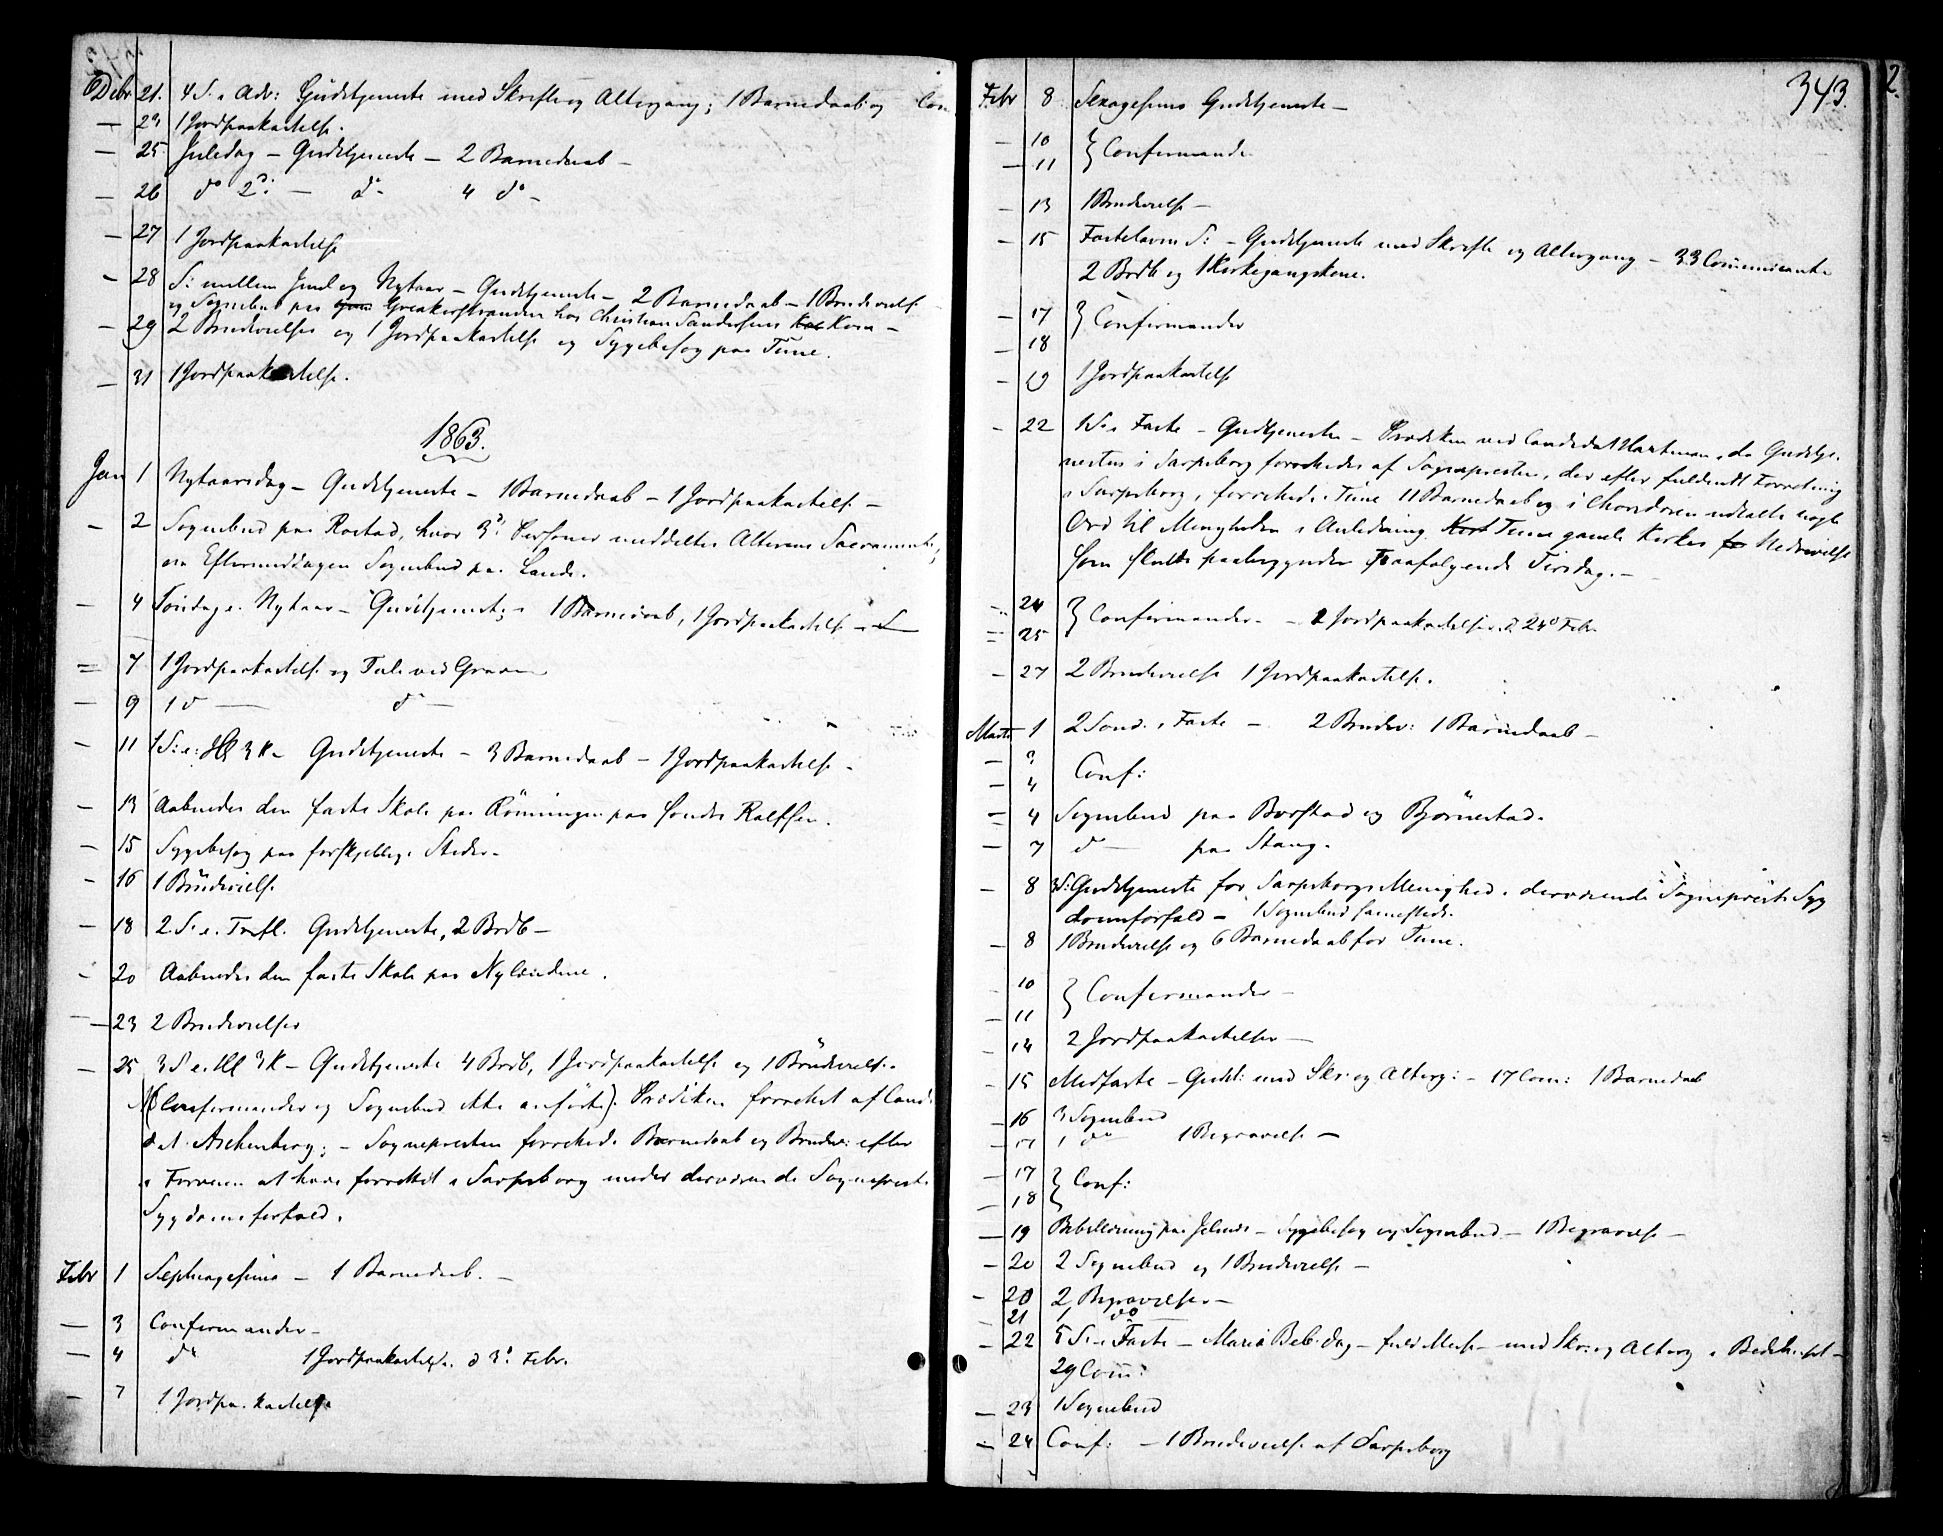 Debr 21. 4 S. i Adv: Gudstjeneste med Skrifte og Altergang; 1 Barnedaab og Com
— 23 1 Jordpaakastelse.
— 25 Juledag — Gudstjeneste — 2 Barnedaab —
— 26 do 2d: — do 4 do —
— 27 1 Jordpaakastelse
— 28 S: mellem Juul og Nytaar — Gudstjeneste — 2 Barnedaab — 1 Brudevielse
og Sognebud paa Greakerstranden hos Christian Sandersens Kone —
— 29 2 Brudevielser og 1 Jordpaakastelse og Sygebesøg paa Tune.
— 31 1 Jordpaakastelse.
1863.
Jan 1 Nytaarsdag — Gudstjeneste — 1 Barnedaab — 1 Jordpaakastelse —
— 2 Sognebud paa Rostad, hvor 3de Personer meddeltes Alterens Sacramente,
om Eftermiddagen Sognebud paa Lande.
— 4 Søndag e. Nytaar — Gudstjeneste; 1 Barnedaab, 1 Jordpaakastelse —
= 7 1 Jordpaakastelse og Tale ved Graven
— 9 1 d — do —
— 11 1 S: e: Hll 3 K — Gudstjeneste — 3 Barnedaab — 1 Jordpaakastelse —
— 13 Aabnedes den faste Skole paa Rönningen paa Søndre Ralfsen.
— 15 Sygebesøg paa forskjellige Steder.
— 16 1 Brüdevielse
— 18 2 S. e. Trefl. Gudstjeneste, 2 Brdb —
— 20 Aabnedes den faste Skole paa Nylændene.
— 23 2 Brudevielser
— 25 3 S e. Hll 3 K — Gudstjeneste 4 Brdb, 1 Jordpaakastelse og 1 Brüdevielse.
(Confermander og Sognebud ikke anførte). Prædiken forrettet af Candi
dat Aschenberg; — Sognepresten forrettede Barnedaab og Brudev: efter
i Forveien at have forrettet i Sarpsborg under derværende Sogneprests
Sygdomsforfald.
Febr 1 Septuagesima — 1 Barnedaab. —
— 3 Confermander —
— 4 do 1 Jordpaakastelse. d 3d: Febr.
— 7 1 Jordpaakastelse
343.
2.
Febr 8 Sexagesima Gudstjeneste —
— 10
— 11 } Confermander
— 13 1 Brudevielse —
— 15 Fastelavns S: — Gudstjeneste med Skrifte og Altergang — 33 Communicante
2 Brdb og 1 Kirkegangskone.
— 17 } Confirmander
— 18
— 19 1 Jordpaakastelse
— 22 1 S. i Faste — Gudstjeneste — Prædiken ved Candidat Hartman, da Gudstje-
nesten i Sarpsborg forrettedes af Sognepresten, der efter fuldendt Forretning
i Sarpsborg, forrettede i Tune 11 Barnedaab og i Chorsdøren udtalte nogle
Ord til Menigheden i Anledning Tune gamle Kirkes Nedrivelse
som skulle paabegyndes paafølgende Tirsdag. —
— 24
= 25 } Confirmander — 2 Jordpaakastelser d. 24d Febr
— 27 2 Brudevielse 1 Jordpaakastelse.
Marts 1 2 Sönd. i Faste — 2 Brudev: 1 Barnedaab —
— 3
— 4 Conf:
= 4 Sognebud paa Borstad og Bjørnestad.
— 7 do — paa Stang.
— 8 3 S: Gudstjeneste for Sarpsborgs Menighed i derværende Sogneprests Syg
domsforfald — 1 Sognebud sammesteds.
— 8 1 Brudevielse og 6 Barnedaab for Tune.
— 10
— 11 } Confermander —
— 14 2 Jordpaakastelser —
— 15 Midfaste — Gudst: med Skr: og Alterg: — 17 Com: 1 Barnedaab
— 16 3 Sognebud
— 17 1 do 1 Begravelse —
— 17
— 18 } Conf:
— 19 Bibellæsning paa Jelund — Sygebesøg og Sognebud — 1 Begravelse —
— 20 2 Sognebud og 1 Brudevielse —
— 20 2 Begravelser —
— 21 1 do
— 22 5 S. i Faste — Mariæ Beb: dag — fuld Messe — med Skr: og Alterg i Bedehuset —
29 Com:
— 23 1 Sognebud
— 24 Conf: — 1 Brudevielse af Sarpsborg